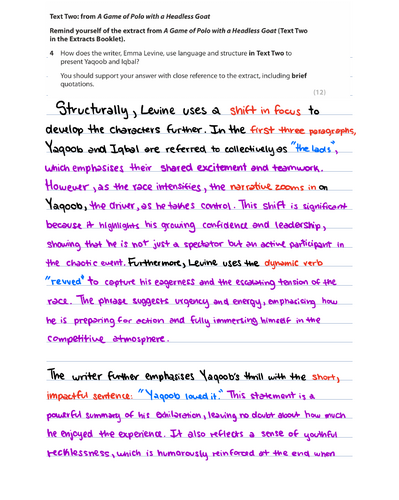 Text Two: from A Game of Polo with a Headless Goat
Remind yourself of the extract from A Game of Polo with a Headless Goat (Text Two
in the Extracts Booklet).
4 How does the writer, Emma Levine, use language and structure in Text Two to
present Yaqoob and Iqbal?
You should support your answer with close reference to the extract, including brief
quotations.
(12)
Structurally, Levine uses a shift in focus to
develop the characters further. In the first three paragraphs,
Yaqoob and Iqbal are referred to collectively as "the lads",
which emphasises their shared excitement and teamwork.
However, as the race intensifies, the narrative zooms in on
Yaqoob, the driver, as he takes control. This shift is significant
because it highlights his growing confidence and leadership,
showing that he is not just a spectator but an active participant in
the chaotic event. Furthermore, Levine uses the dynamic verb
"revved" to capture his eagerness and the escalating tension of the
race. The phrase suggests urgency and energy, emphasising how
he is preparing for action and fully immersing himself in the
competitive atmosphere.
The writer further emphasises Yaqoob's thrill with the short,
impactful sentence: "Yaqoob loved it." This statement is a
powerful summary of his exhilaration, leaving no doubt about how much
he enjoyed the experience. It also reflects a sense of youthful
recklessness, which is humorously reinforced at the end when